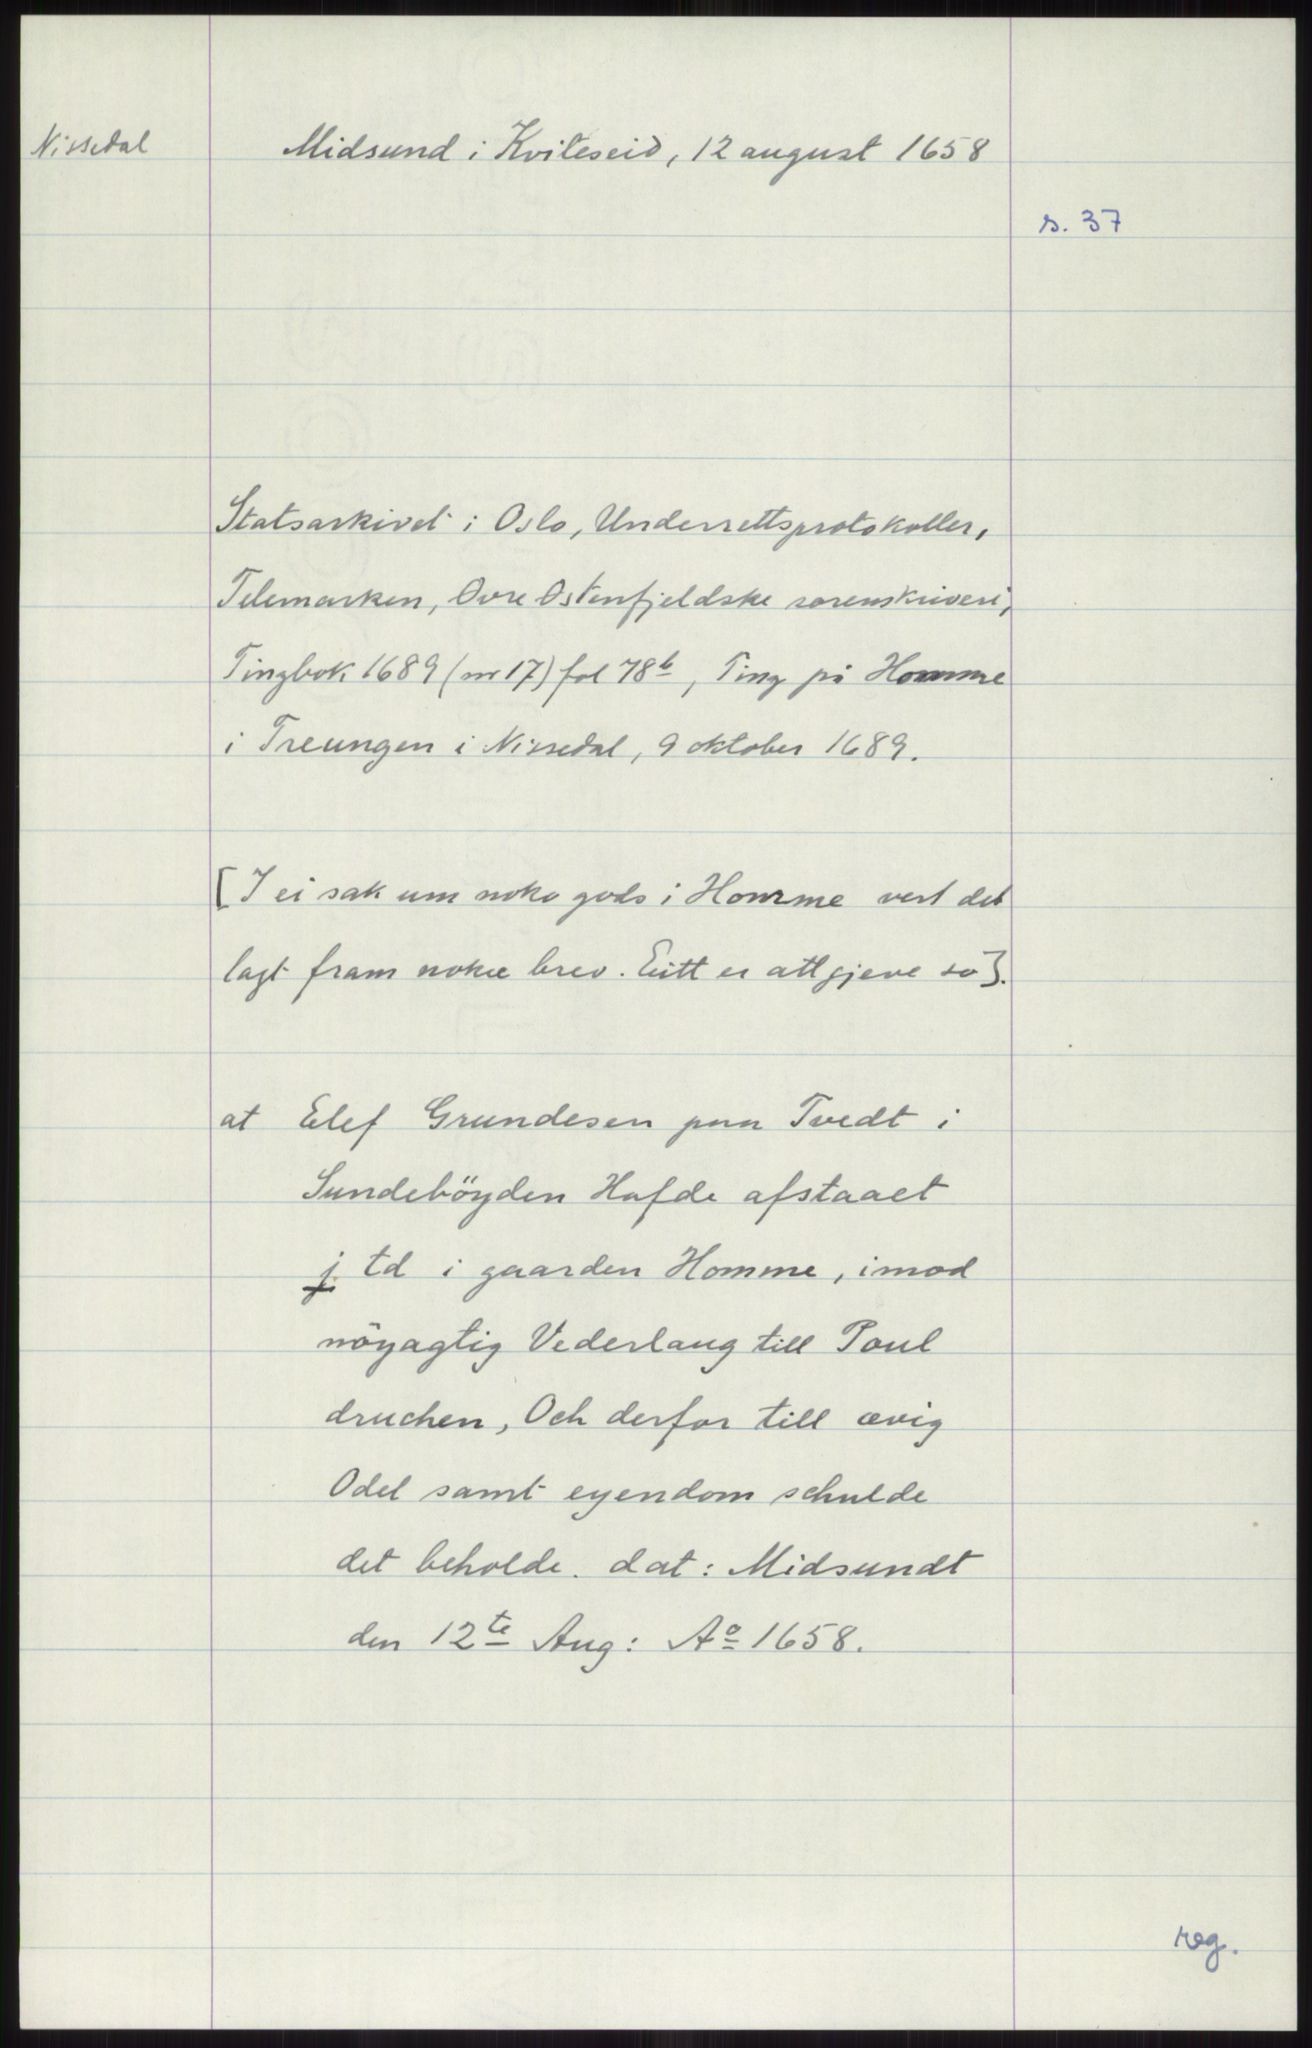 Nissedal
Midsund i Kviteseid, 12 august 1658
s. 37
Statsarkivet i Oslo, Underrettsprotokoller,
Telemarken, Øvre Østenfjeldske sorenskriveri,
Tingbok 1689 (nr 17) fol 78b, Ting på Homme
i Treungen i Nissedal, 9 oktober 1689.
[I ei sak um noko gods i Homme vert det
lagt fram nokre brev. Eitt er attgjeve so].
at Elef Grundesen paa Tvedt i
Sundeböyden Hafde afstaaet
j td i gaarden Homme, imod
nöyagtig Vederlaug till Poul
druchen, Och derfor till ævig
Odel samt eyendom schulde
det beholde. dat: Midsundt
den 12te Aug: Ao 1658.
reg.